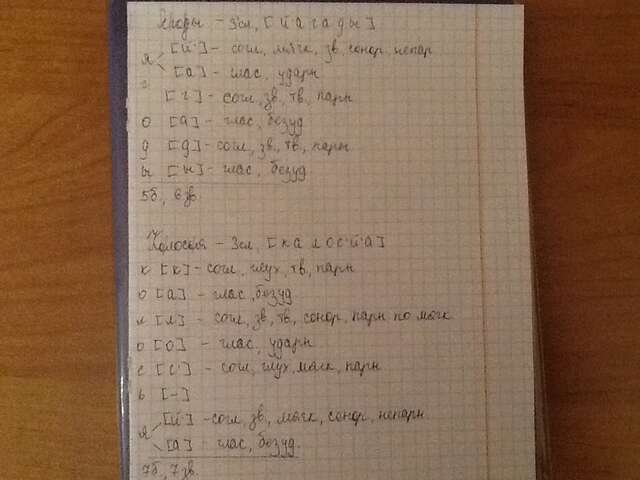 Ягоды - 3сл, [й'агады]
я [й'] - согл, мягк, зв, сонор, непар
[а] - глас, ударн
г [г] - согл, зв, тв, парн
о [а] - глас, безуд
д [д] - согл, зв, тв, парн
ы [ы] - глас, безуд
5б, 6зв.
Колосья - 3сл, [калос'й'а]
к [к] - согл, глух, тв, парн
о [а] - глас, безуд
л [л] - согл, зв, тв, сонор, парн по мягк
о [о] - глас, ударн
с [с'] - согл, глух, мягк, парн
ь [-]
я [й'] - согл, зв, мягк, сонор, непарн
[а] - глас, безуд.
7б, 7зв.